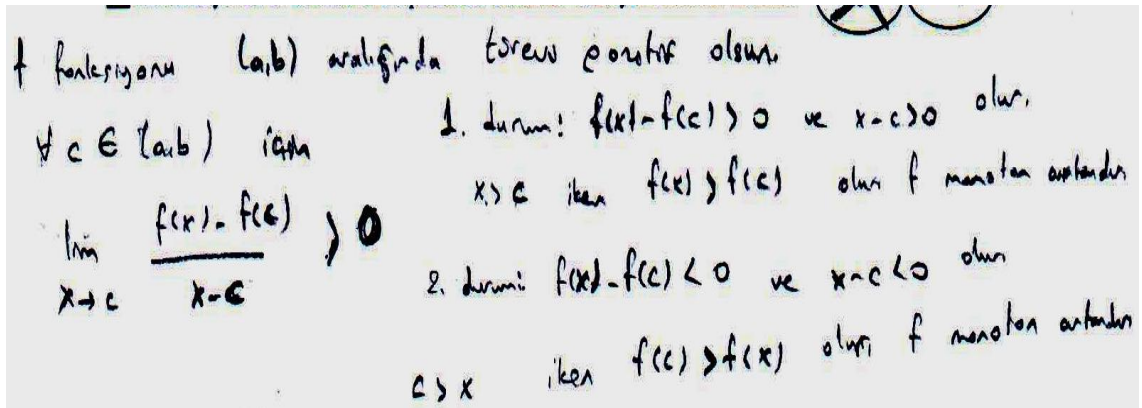 f fonksiyonu (a,b) aralığında türevi pozitif olsun.
∀ c ∈ (a,b) için
lim x→c f(x) - f(c) / x - c > 0
1. durum: f(x) - f(c) > 0 ve x - c > 0 olur.
x > c iken f(x) > f(c) olur f monoton artandır
2. durum: f(x) - f(c) < 0 ve x - c < 0 olur
c > x iken f(c) > f(x) olur, f monoton artandır